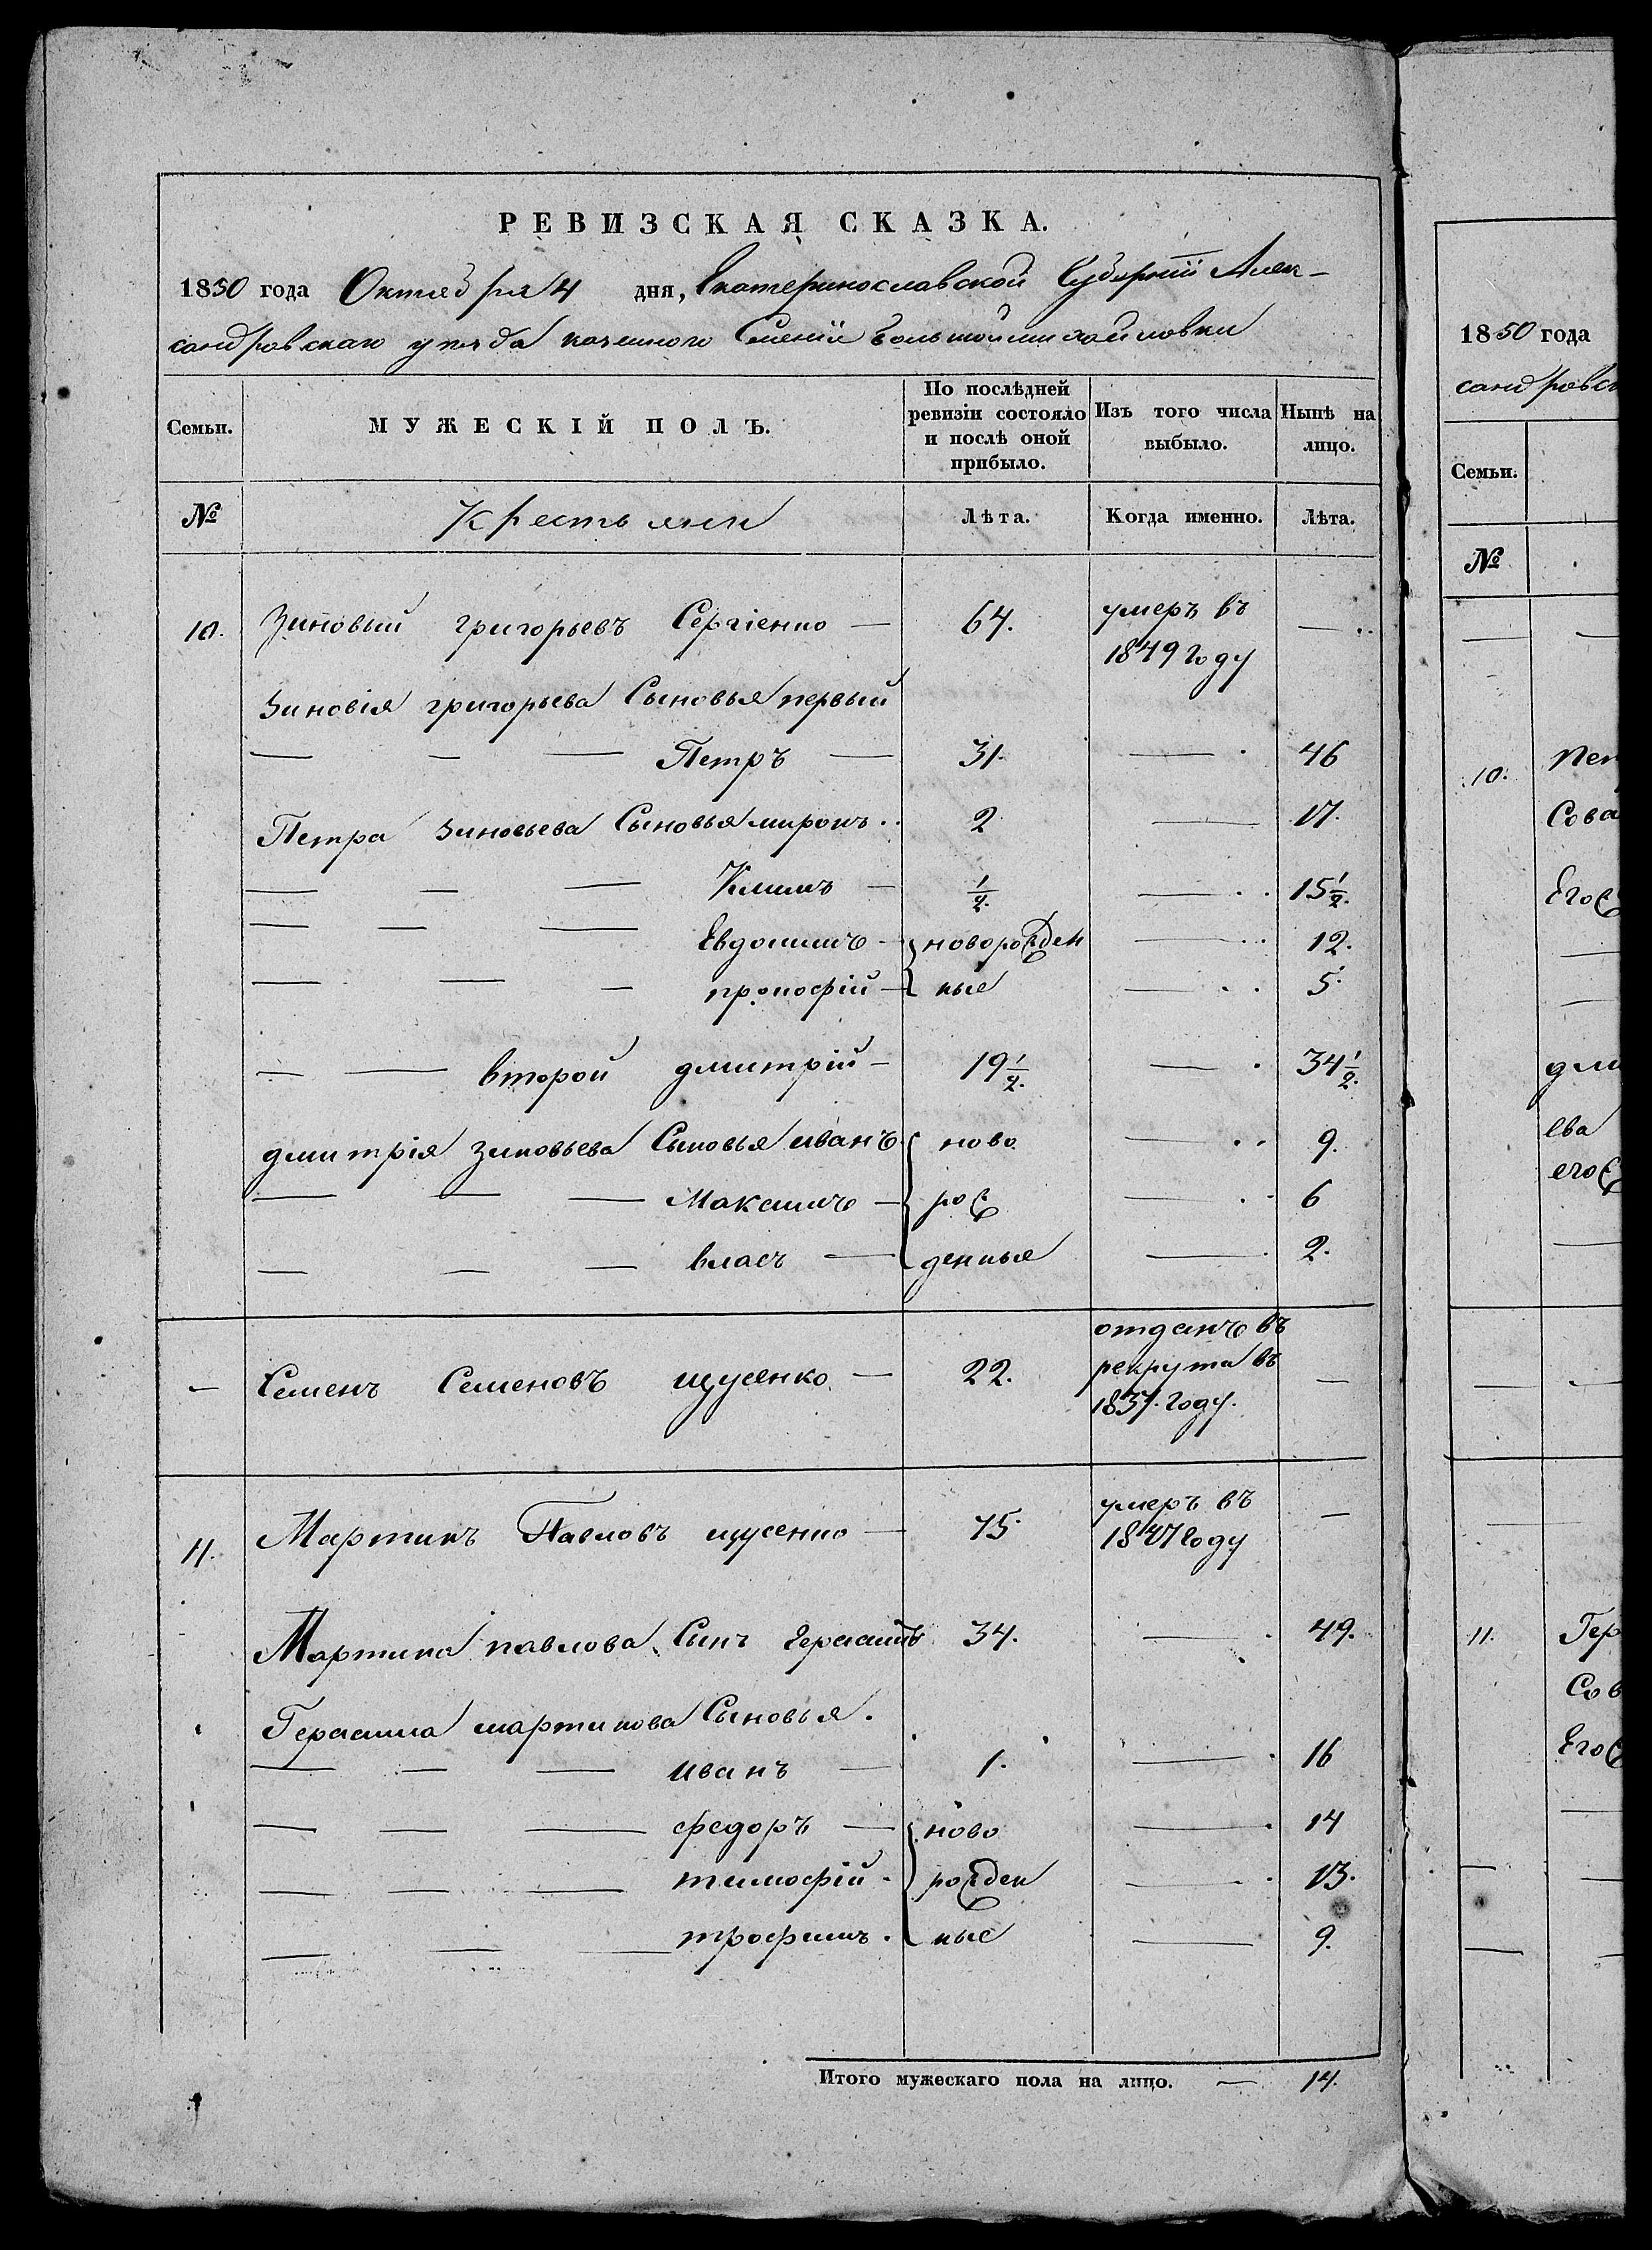 РЕВИЗСКАЯ СКАЗКА.
1850 года Октября 4 дня, Екатеринославской Губерніи Алек-
сандровскаго уезда казенного Селенія большоймихайловки
Семьи. МУЖЕСКІЙ ПОЛЪ. По послѣдней ревизіи состояло и послѣ оной прибыло. Изъ того числа выбыло. Нынѣ на лицо.
№ Крестьяни Лѣта. Когда именно. Лѣта.
10. Зиновый григорьевъ Сергіенко — 64. умеръ въ 1849 году —
Зиновія григорьева Сыновья первый
— — — Петръ — 31. — 46
Петра Зиновьева Сыновья миронъ. 2 — 17.
— — — Климъ — 1/2. — 15 1/2.
— — — Евдокимъ — новорожден — 12.
— — — прокофій — ные — 5.
— — второй дмитрій — 19 1/2. — 34 1/2.
дмитрія Зиновьева Сыновья иванъ ново — 9.
— — — Максимъ — рож — 6
— — — власъ — денныя — 2.
— Семенъ Семеновъ щусенко — 22. отданъ въ рекрута въ 1837. году. —
11. Мартинъ Павловъ щусенко — 75. умеръ въ 1847 году —
Мартина павлова Сынъ Герасимъ 34. — 49.
Герасима мартинова Сыновья.
— — — иванъ — 1. — 16
— — — федоръ — ново — 14
— — — тимофій - рожден — 13.
— — — трофимъ. ные — 9.
Итого мужескаго пола на лицо. — 14.
1850 года
сандровск
Семьи.
№
10. Пет
Его
дми
ева
его
11. Гер
Его